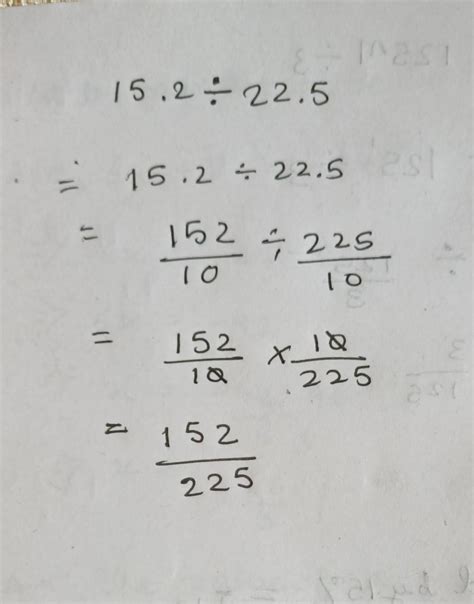 15.2 ÷ 22.5
= 15.2 ÷ 22.5
= 152/10 ÷ 225/10
= 152/10 × 10/225
= 152/225